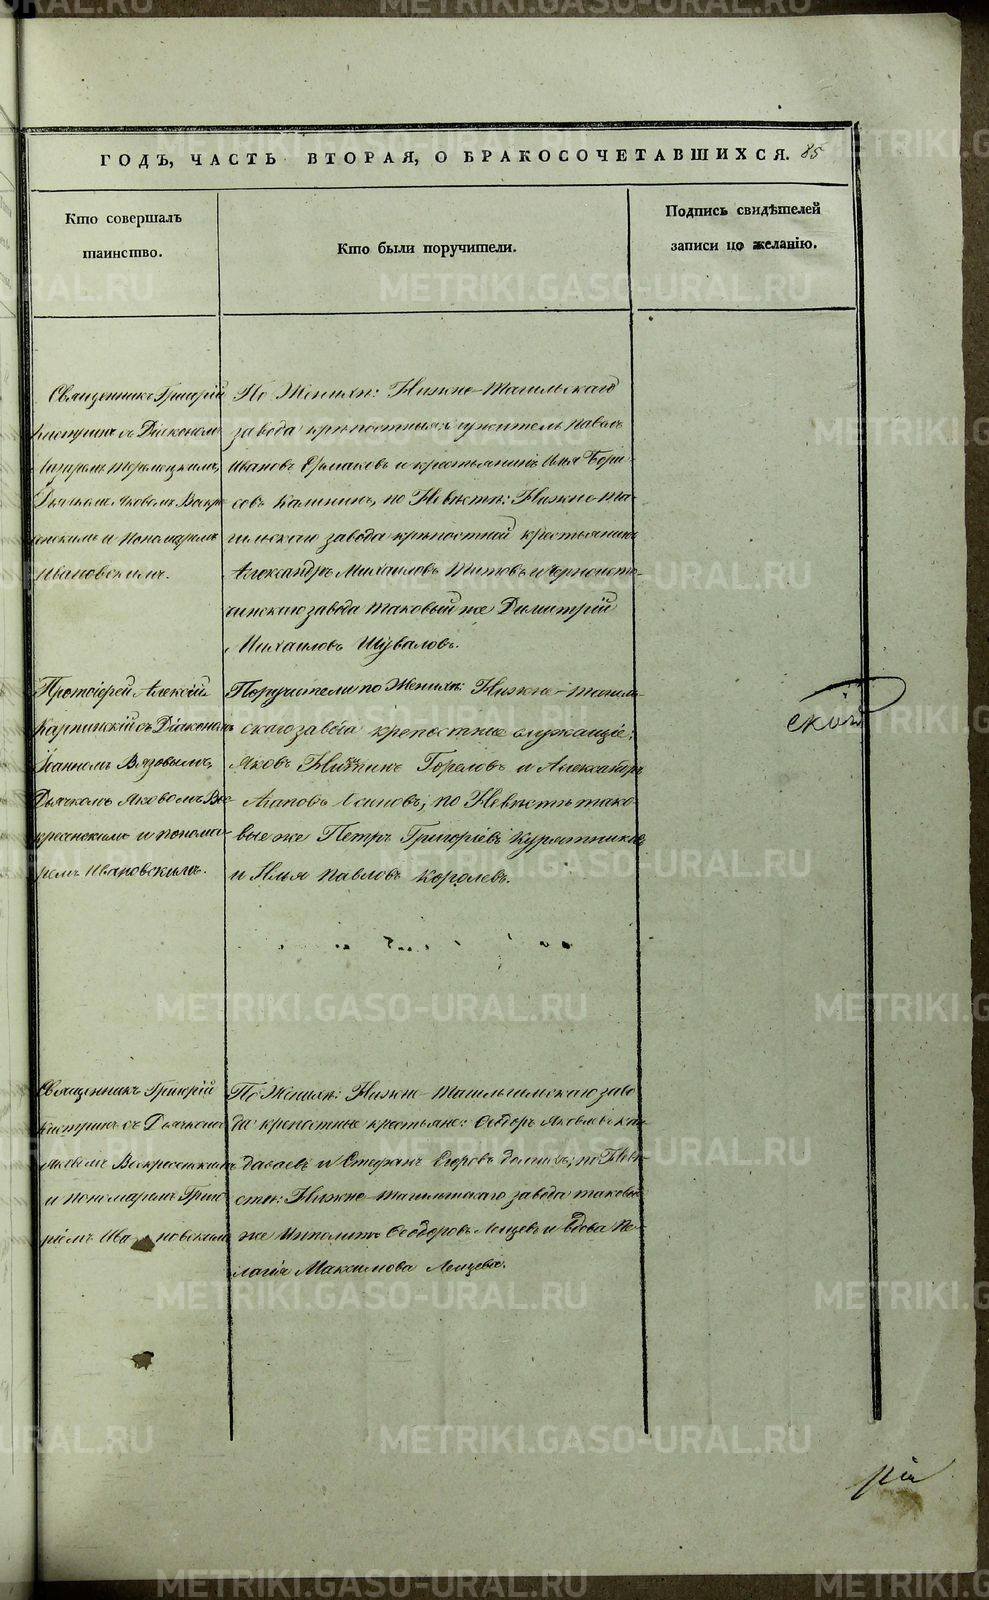 ГОДЪ, ЧАСТЬ ВТОРАЯ, О БРАКОСОЧЕТАВШИХСЯ. 85
Кто совершалъ
таинство.
Кто были поручители.
Подпись свидѣтелей
записи по желанію.
Священникъ Григорій
Кастринъ съ Діакономъ
Дьячкомъ Яковомъ Воскре
сенскимъ и Пономаремъ
Ивановскимъ.
По Женихѣ: Нижне-Тагильскаго
завода крѣпостныя служитель Павелъ
Ивановъ Ермаковъ и крестьянинъ Илья Бори
совъ Калининъ, по Невѣстѣ: Нижне-Та
гильскаго завода крѣпостной крестьянинъ
Александръ Михаиловъ Титовъ и Черноисто
чинскаго завода таковый же Димитрій
Михаиловъ Шуваловъ.
Протоіерей Алексій
Карпинскій съ Діакономъ
Іоанномъ Вязовымъ,
Дьячкомъ Яковомъ Вос
кресенскимъ и понома
ремъ Ивановскимъ.
Поручители по Женихѣ: Нижне-Тагиль
скаго завода крѣпостные служащіе:
Яковъ Никитинъ Гореловъ и Александръ
Агаповъ Осиповъ; по Невѣстѣ тако
вые же Петръ Григоріевъ Курятниковъ
и Илья Павловъ Королевъ.
скій
Священникъ Григорій
Кастринъ съ Дьячкомъ
Яковымъ Воскресенскимъ
и Пономаремъ Григо
ріемъ Ивановскимъ
По Женихѣ: Нижне-Тагильскаго заво
да крѣпостные крестьяне: Ѳедоръ Яковлевъ
и Стефанъ Егоровъ; по Невѣ
стѣ: Нижне-Тагильскаго завода таковые
же Ипполитъ Ѳеодоровъ Ленцевъ и вдова Пе
лагія Максимова Ленцева.
рія
METRIKI.GASO-URAL.RU